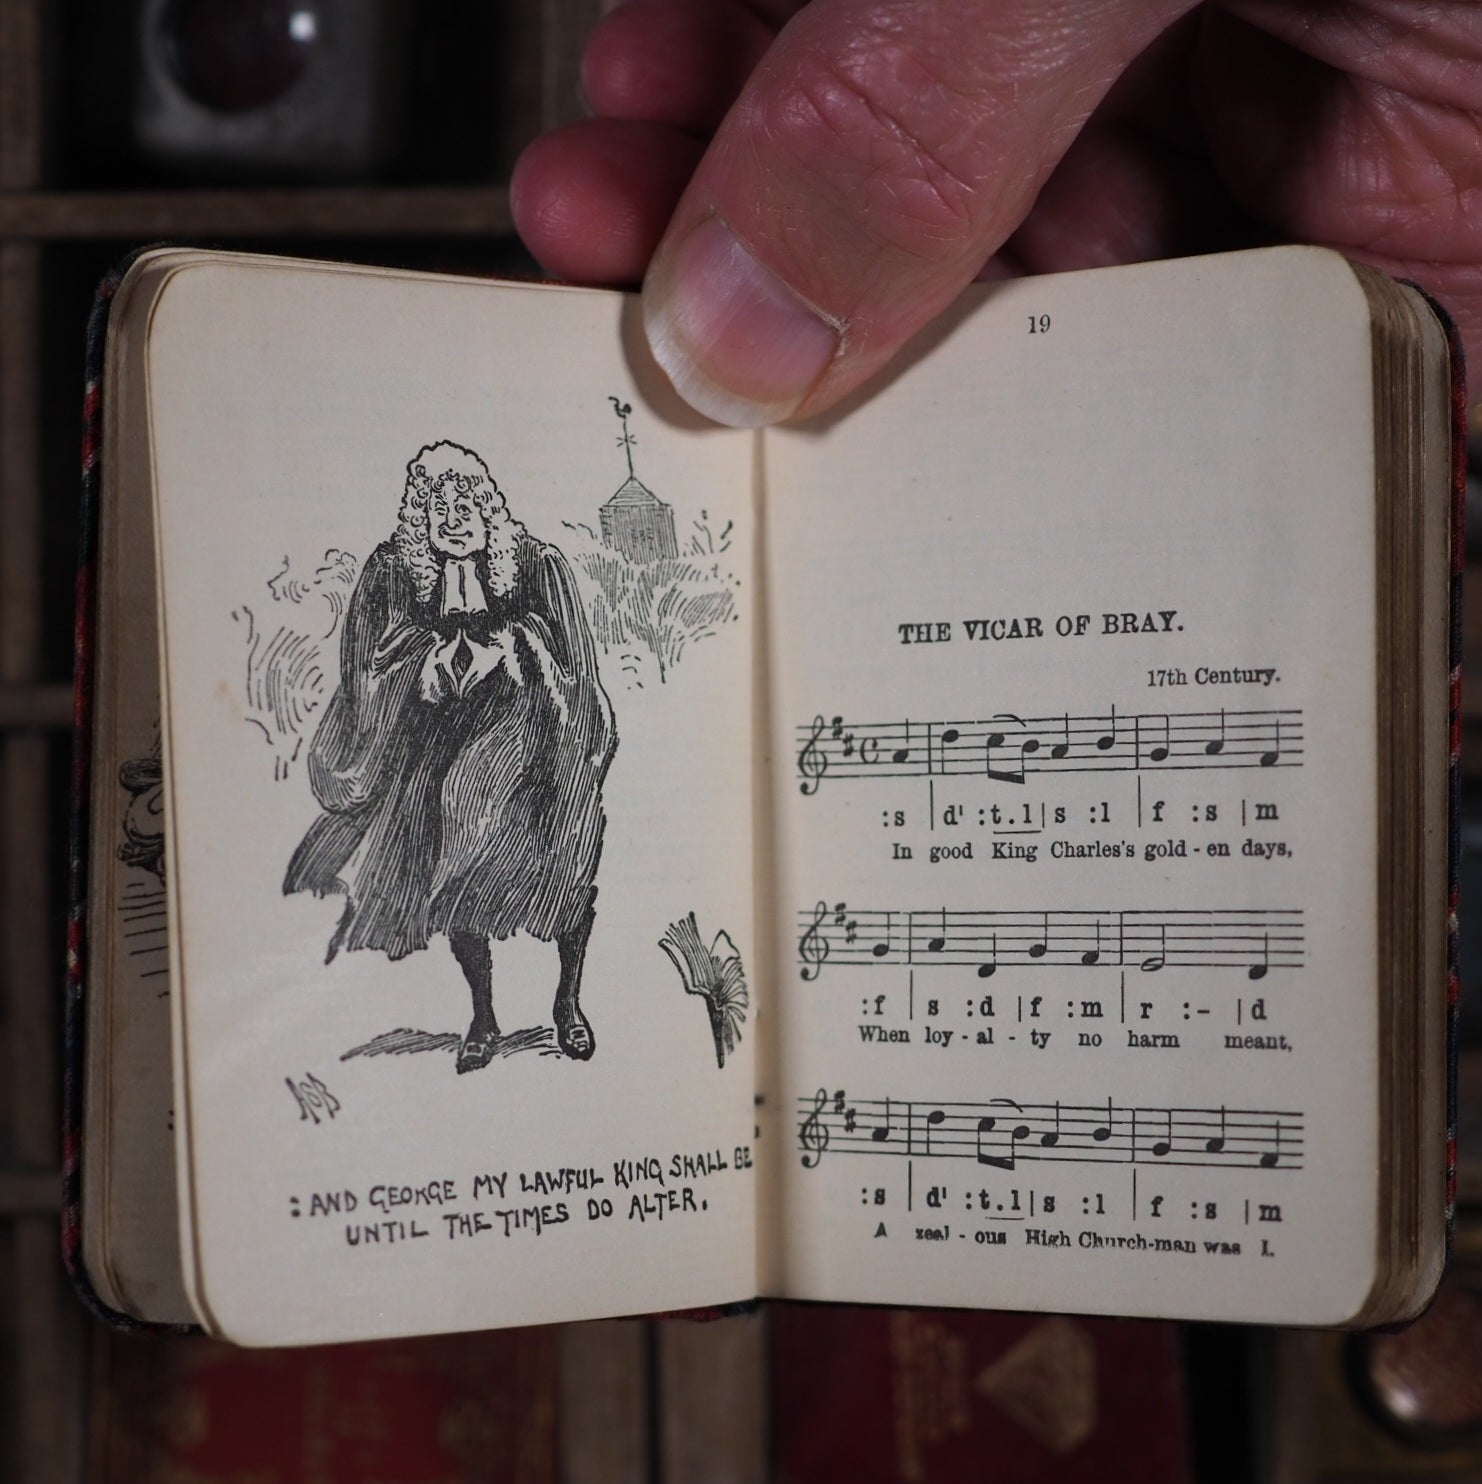 :AND GEORGE MY LAWFUL KING SHALL BE
UNTIL THE TIMES DO ALTER.
19
THE VICAR OF BRAY.
17th Century.
:s | d' :t.l | s :l | f :s | m
In good King Charles's gold - en days,
:f | s :d | f :m | r :- | d
When loy - al - ty no harm meant,
:s | d' :t.l | s :l | f :s | m
A zeal - ous High Church-man was I.